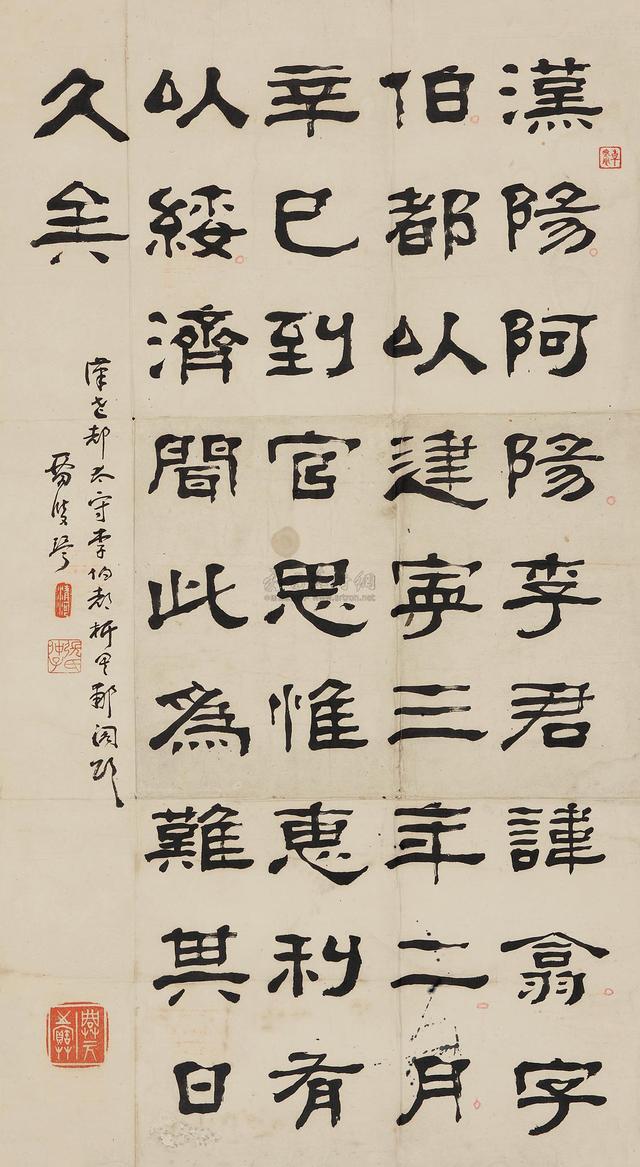 漢陽阿陽李君諱翕字
伯都以建寧三年二月
辛巳到官思惟惠利有
以綏濟間此為難其日
久矣
漢武都太守李伯都析里郙閣頌